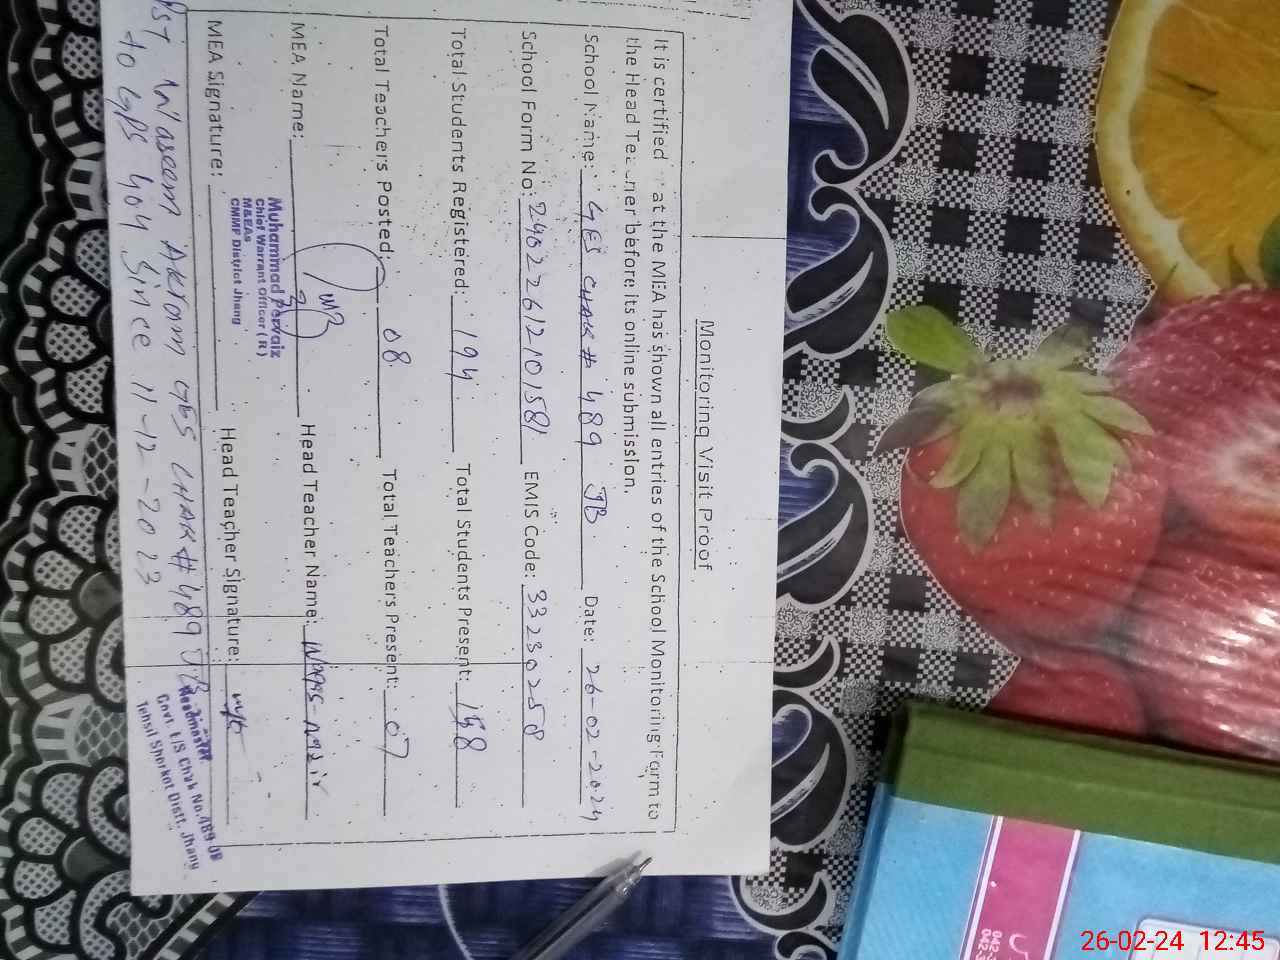 Monitoring Visit Proof
It is certified at the MEA has shown all entries of the School Monitoring Form to
the Head Teacher before its online submission.
School Name: GES CHAK # 489 JB Date: 26-02-2024
School Form No: 24022612101581 EMIS Code: 33230258
Total Students Registered: 194 Total Students Present: 158
Total Teachers Posted: 08 Total Teachers Present: 07
MEA Name: Head Teacher Name:
Muhammad Pervaiz
Chief Warrant Officer (R)
M&EAs
CMMF District Jhang
MEA Signature: Head Teacher Signature:
Headmaster
Govt. E/S Chak No.489 JB
Tehsil Shorkot Distt. Jhang
PST Waseem Akram GES CHAK # 489 JB
to GPS 404 Since 11-12-2023
26-02-24 12:45